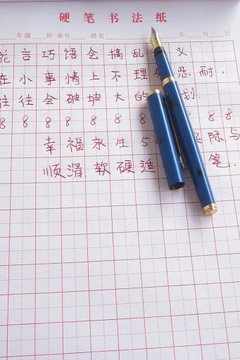 硬笔书法纸
年级 班 座号 姓名 年 月 日
花言巧语会搞乱 义
在小事情上不理 忍耐,
往往会破坏大的 划.
8 8 8 8 8 8 8 8 8
幸福来生 5 际与
顺滑 软硬适 笔.